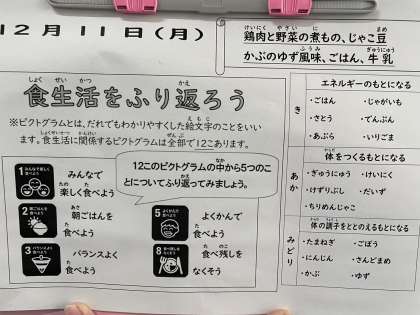 12月11日(月)
鶏肉と野菜の煮もの、じゃこ豆
かぶのゆず風味、ごはん、牛乳
食生活をふり返ろう
※ピクトグラムとは、だれでもわかりやすくした絵文字のことをいい
ます。食生活に関係するピクトグラムは全部で12こあります。
12このピクトグラムの中から5つのこ
とについてふり返ってみましょう。
みんなで
楽しく食べよう
2
朝ごはんを
食べよう
3
バランスよく
食べよう
5
よくかんで
食べよう
8
食べ残しを
なくそう
エネルギーのもとになる
き
・ごはん ・じゃがいも
・さとう ・でんぷん
・あぶら ・いりごま
体をつくるもとになる
あか
・ぎゅうにゅう ・けいにく
・けずりぶし ・だいず
・ちりめんじゃこ
体の調子をととのえるもとになる
みどり
・たまねぎ ・ごぼう
・にんじん ・さんどまめ
・かぶ ・ゆず